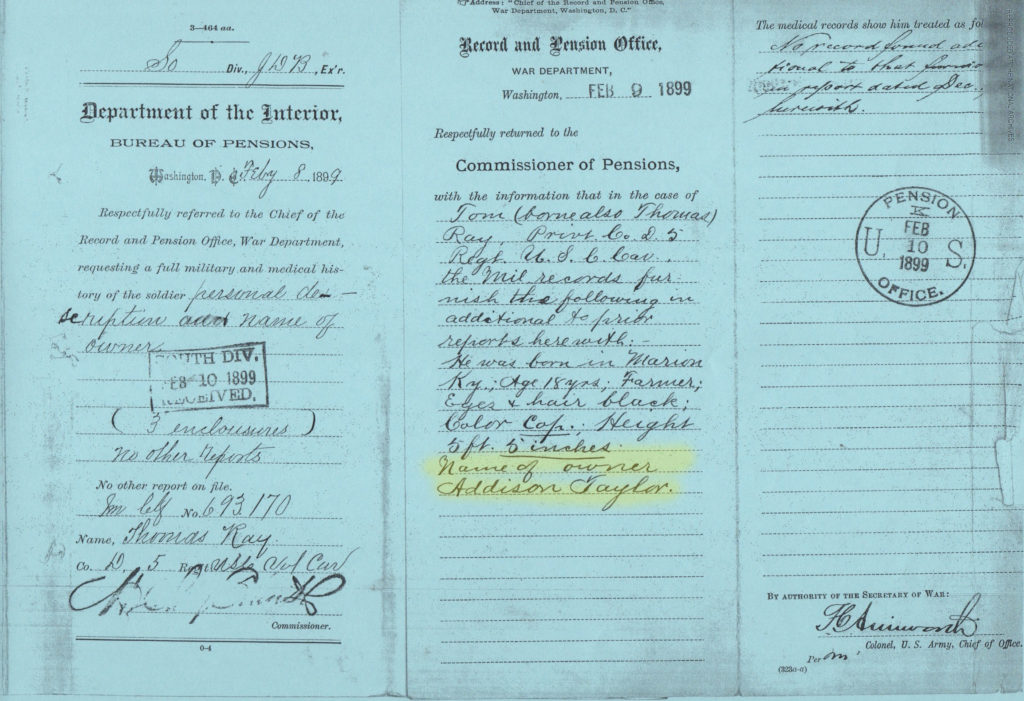 3—464 aa.
So Div., J D B, Ex'r.
Department of the Interior,
BUREAU OF PENSIONS,
Washington, D. C. Feby 8, 1899.
Respectfully referred to the Chief of the
Record and Pension Office, War Department,
requesting a full military and medical his-
tory of the soldier personal de-
scription and name of
owner.
SOUTH DIV.
FEB 10 1899
RECEIVED.
(3 enclosures)
no other reports
No other report on file.
No. 693,170
Name, Thomas Ray
Co. D, 5 Reg't Vol Cav
Commissioner.
0-4
Address: "Chief of the Record and Pension Office,
War Department, Washington, D. C."
Record and Pension Office,
WAR DEPARTMENT,
Washington, FEB 9 1899
Respectfully returned to the
Commissioner of Pensions,
with the information that in the case of
Tom (borne also Thomas)
Ray, Privt Co. D. 5
Regt. U. S. C. Cav.,
the Mil records fur-
nish the following in
additional to prior
reports herewith:-
He was born in Marion
Ky.; Age 18 yrs; Farmer;
Eyes & hair black;
Color Cop.; Height
5 ft. 5 inches.
Name of owner
Addison Taylor.
The medical records show him treated as fo
No record found add
tional to that
in report dated Dec.,
herewith.
PENSION
FEB
U. 10 S.
1899
OFFICE.
BY AUTHORITY OF THE SECRETARY OF WAR:
F C Ainsworth
Colonel, U. S. Army, Chief of Office.
Per m,
(323a-a)